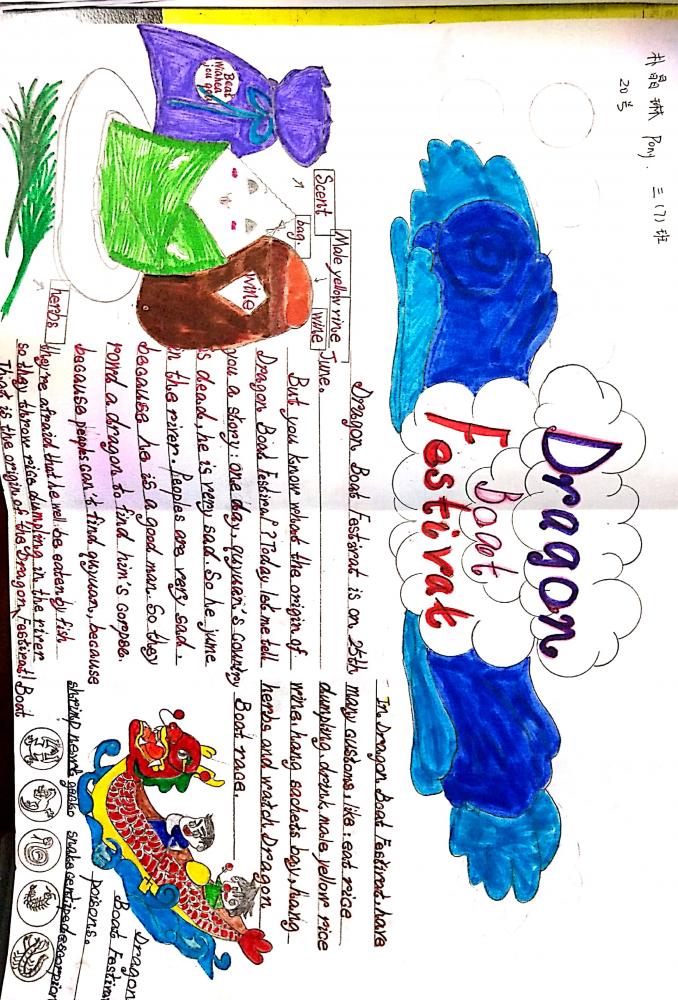 朴晶琳 Pony. 三(7)班
20号
Dragon
Boat
Festivat
Best
Wishes
you got!
Scent
bag.
Male yellow rine
wine
wine
herbs
Dragon Boat Festivat is on 25th
June.
But you know whats the origin of
Dragon Boad Festivat? Today let me tell
you a story: one day, quyuan's country
is dead, he is very sad. So he jume
in the river. Peoples are very sad,
because he is a good man. So they
rond a dragon to find him's corpes.
because people can't find quyuan, because
they're afraid that he well be eaten by fish
so they throw rice dumpling in the river
That is the origin of the Dragon Boat Festivat!
In Dragon Boad Festivat have
many customs, like: eat rice
dumpling, drink male yellow rice
wine, hang sachets bay, hung-
herbs and watch Dragon
Boat race.
Dragon
Boat Festivat
poisons.
shrimp newt gecko snake centipede scorpion